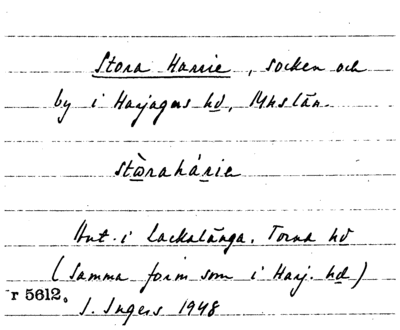 Stora Harrie, socken och
by i Harjagers hd, Mhslän.
stωrahárie
Ant. i Lackalänga, Torna hd
(Samma form som i Harj. hd)
r 5612.
I. Ingers 1948